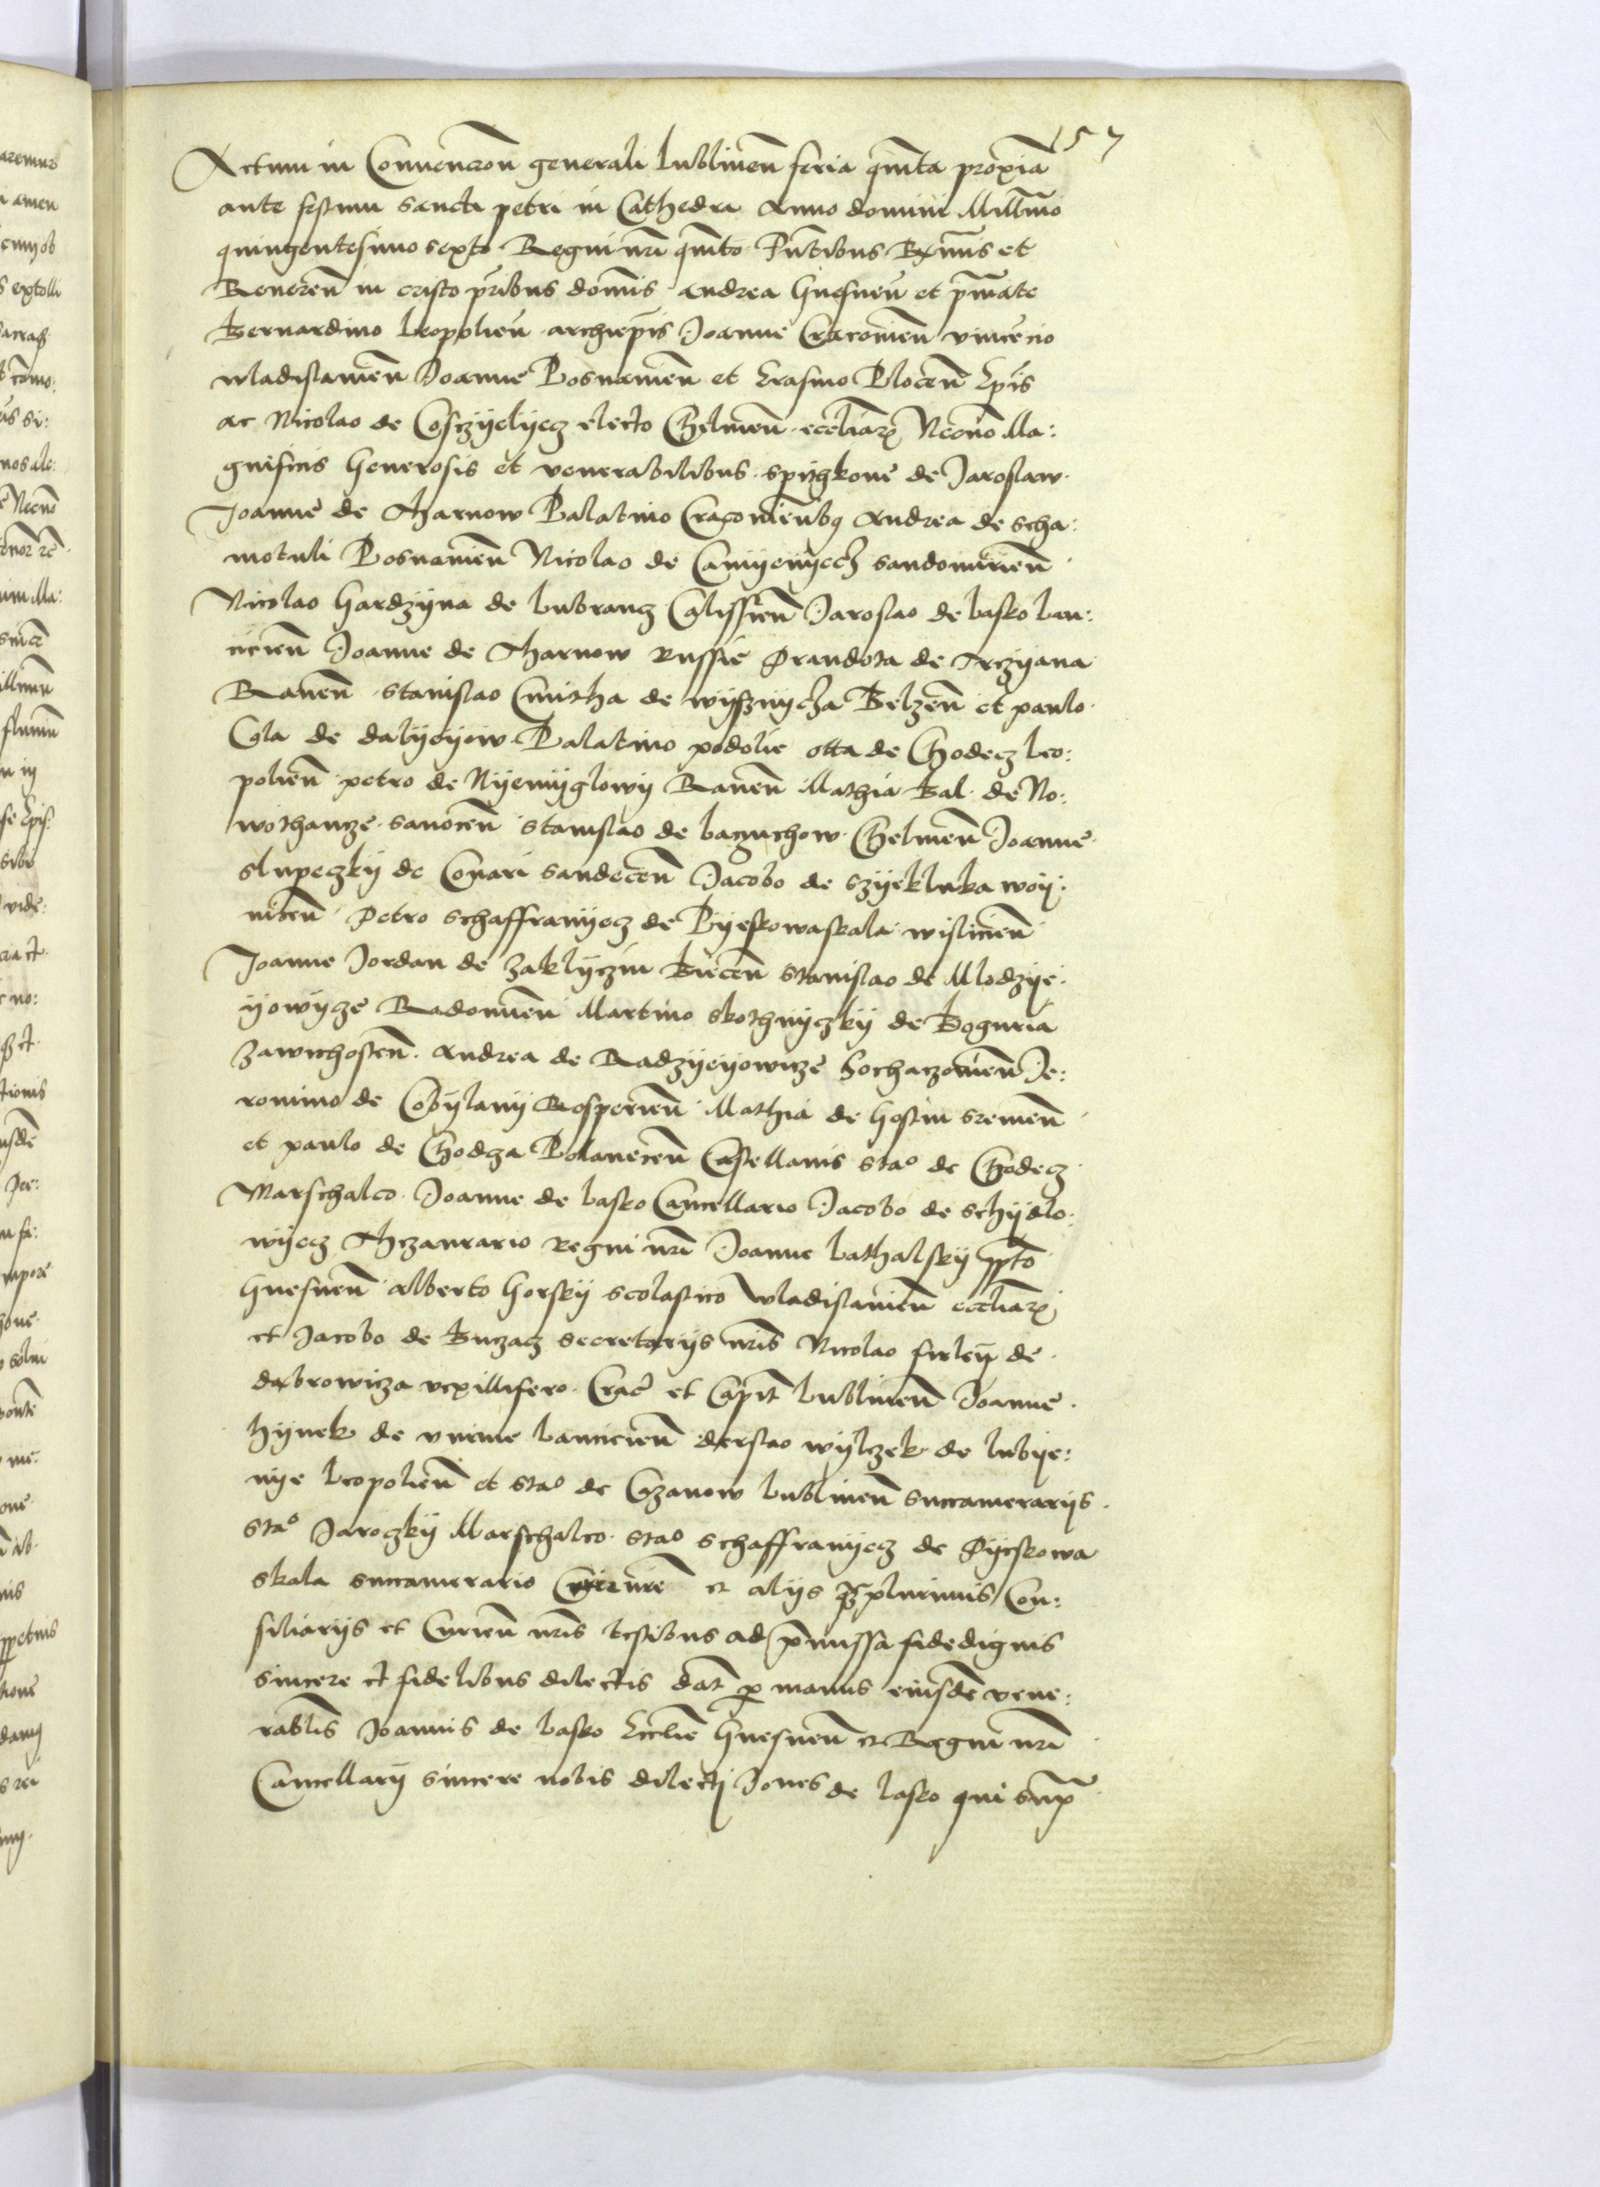 157
Actum in Convencion̄ generali lublinen̄ feria quīta proxīa
ante festum sancti petri in Cathedra Anno domini Mill̄mo
quingentesimo sexto Regni nr̄i quīto P̄ntibus R̄mis et
Reueren̄ in cristo p̄ribus domīs Andrea Gnesnen̄ et p̄mate
Bernardino leopolien̄ archiep̄is Joanne Cracouien̄ vincēcio
wladislauien̄ Joanne Posnanien̄ et Erasmo Plocen̄ Ep̄is
ac Nicolao de Cosczyelyecz electo Chelmen̄ eccliar̄ Necnō Ma:
gnificis Generosis et venerabilibus spitkone de Jaroslaw
Joanne de Tharnow Palatino Cracouien̄bq Andrea de scha:
motuli Posnanien̄ Nicolao de Camyenyecz sandomirien̄
Nicolao Gardzyna de lubrancz Calissien̄ Jaroslao de lasko lan:
cicien̄ Joanne de Tharnow russie Prandota de Trczyana
Rauen̄ stanislao Cmitha de wysznycza Belzen̄ et paulo
Cola de dalyeyow Palatino podolie otta de Chodecz leo:
polien̄ petro de Nyemyglowy Rauen̄ Mathia Bal de No:
wothancze sanocen̄ stanislao de baguchow Chelmen̄ Joanne
slupeczky de Conari sandecen̄ Jacobo de szyekluka woy:
nicen̄ Petro schaffranyecz de Pyeskowaskala wislicien̄
Joanne Jordan de zaklyczin Biecen̄ stanislao de Mlodzye:
yowycze Radomien̄ Martino skothnyczky de Boguria
zawichosten̄ Andrea de Radzyeyowicze Sochaczouien̄ Je:
ronimo de Cobylany Rosperien̄ Mathia de Gostin sremen̄
et paulo de Chodcza Polanecen̄ Castellanis sta° de Chodecz
Marschalco Joanne de lasko Cancellario Jacobo de schydlo:
wyecz Thezaurario regni nr̄i Joanne lathalsky pp̄to
Gnesnen̄ alberto Gorsky scolastico wladislauien̄ eccliar̄
et Jacobo de Buczacz secretarijs nr̄is Nicolao firley de
dabrowicza vexillifero Crac̄ et Capit̄ lublinen̄ Joanne
hynek de lancicien̄ derslao wylczek de lubye:
nye leopolien̄ et sta° de Czanow lublinen̄ succamerarijs
sta° Jaroczky Marschalco sta° schaffranyecz de Pyeskowa
skala succamerario Curie nr̄e et alijs q̄ plurimis Con:
siliarijs et Curien̄ nr̄is testibus ad p̄missa fidedignis
sincere et fidelibus dilectis dat̄ p manus eiusdē vene:
rablis Joannis de lasko Ecclie Gnesnen̄ et Regni nr̄i
Cancellarij sincere nobis dilecti Jones de lasko qui sup̄